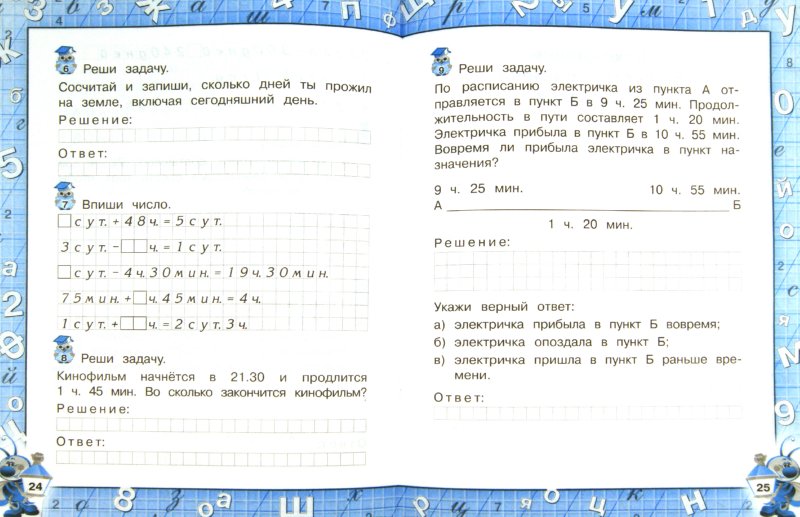 6 Реши задачу.
Сосчитай и запиши, сколько дней ты прожил
на земле, включая сегодняшний день.
Решение:
Ответ:
7 Впиши число.
сут. + 48ч. = 5сут.
3 сут. – ч. = 1сут.
сут. – 4ч. 30мин. = 19ч. 30мин.
75мин. + ч. 45мин. = 4ч.
1сут. + ч. = 2сут. 3ч.
8 Реши задачу.
Кинофильм начнётся в 21.30 и продлится
1 ч. 45 мин. Во сколько закончится кинофильм?
Решение:
Ответ:
24
9 Реши задачу.
По расписанию электричка из пункта А от-
правляется в пункт Б в 9 ч. 25 мин. Продол-
жительность в пути составляет 1 ч. 20 мин.
Электричка прибыла в пункт Б в 10 ч. 55 мин.
Вовремя ли прибыла электричка в пункт на-
значения?
9 ч. 25 мин. 10 ч. 55 мин.
А Б
1 ч. 20 мин.
Решение:
Укажи верный ответ:
а) электричка прибыла в пункт Б вовремя;
б) электричка опоздала в пункт Б;
в) электричка пришла в пункт Б раньше вре-
мени.
Ответ:
25